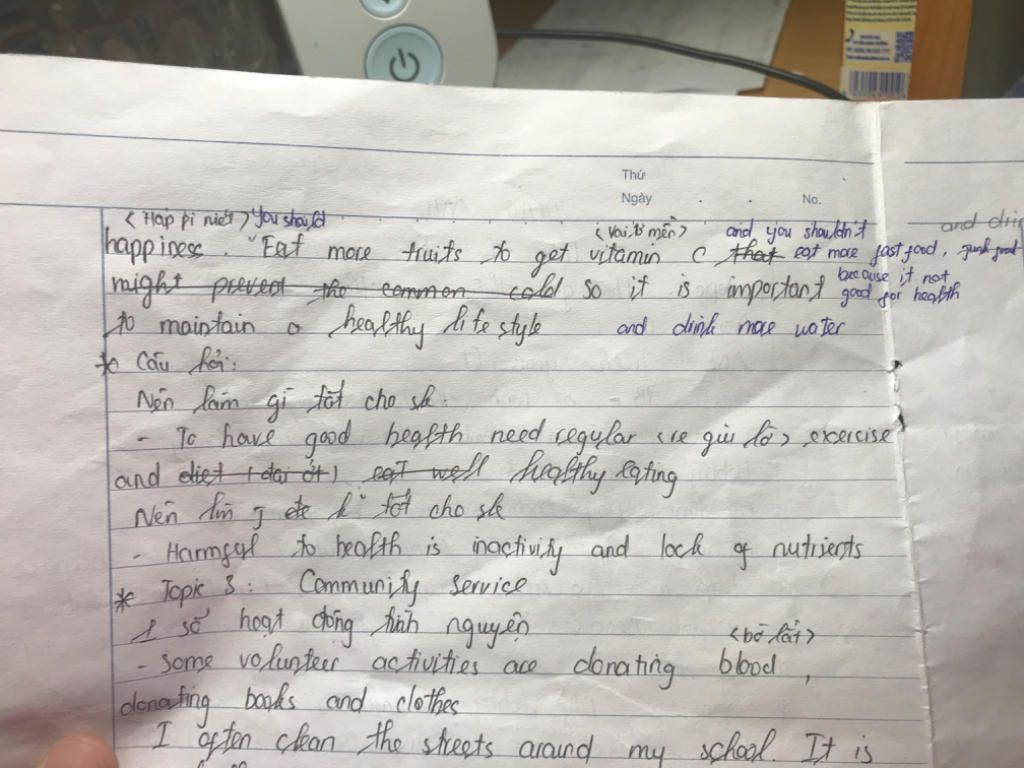 Thứ
Ngày . . No.
<Hap pi niet> You should <vai tơ mền> and you shouldn't and drin
happiness. Eat more fruits to get vitamin C that eat more fast food, junk food
might prevent the common cold so it is important because it not good for health
to maintain a healthy life style and drink more water
* Câu hỏi:
Nên làm gì tốt cho sk.
- To have good health need regular <re giu lờ> exercise
and diet (đai ớt) eat well healthy eating
Nên làm j k tốt cho sk
- Harmful to health is inactivity and lack of nutrients
* Topic 3: Community Service
1 số hoạt động tình nguyện
<bờ lất>
- some volunteer activities are donating blood,
donating books and clothes
I often clean the streets around my school. It is